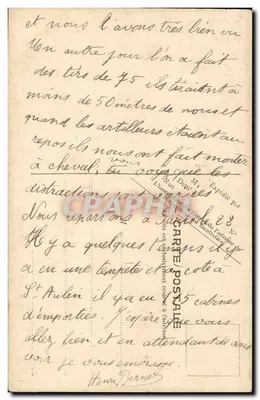 et nous l'avons très bien vu
Un autre jour l'on a fait
des tirs de 75 ils tiraient à
moins de 50 mètres de nous et
quand les artilleurs étaient au
repos ils nous ont fait monter
à cheval, tu vous que les
distractions
Nous repartons à 23
Il y a quelques temps il y
a eu une tempête et a côté à
St Aubin il y a eu 75 cabines
d'emportées. J'espère que vous
allez bien et en attendant de vous
voir je vous embrasse
Henri Bernet
CARTE POSTALE
CPARAMA